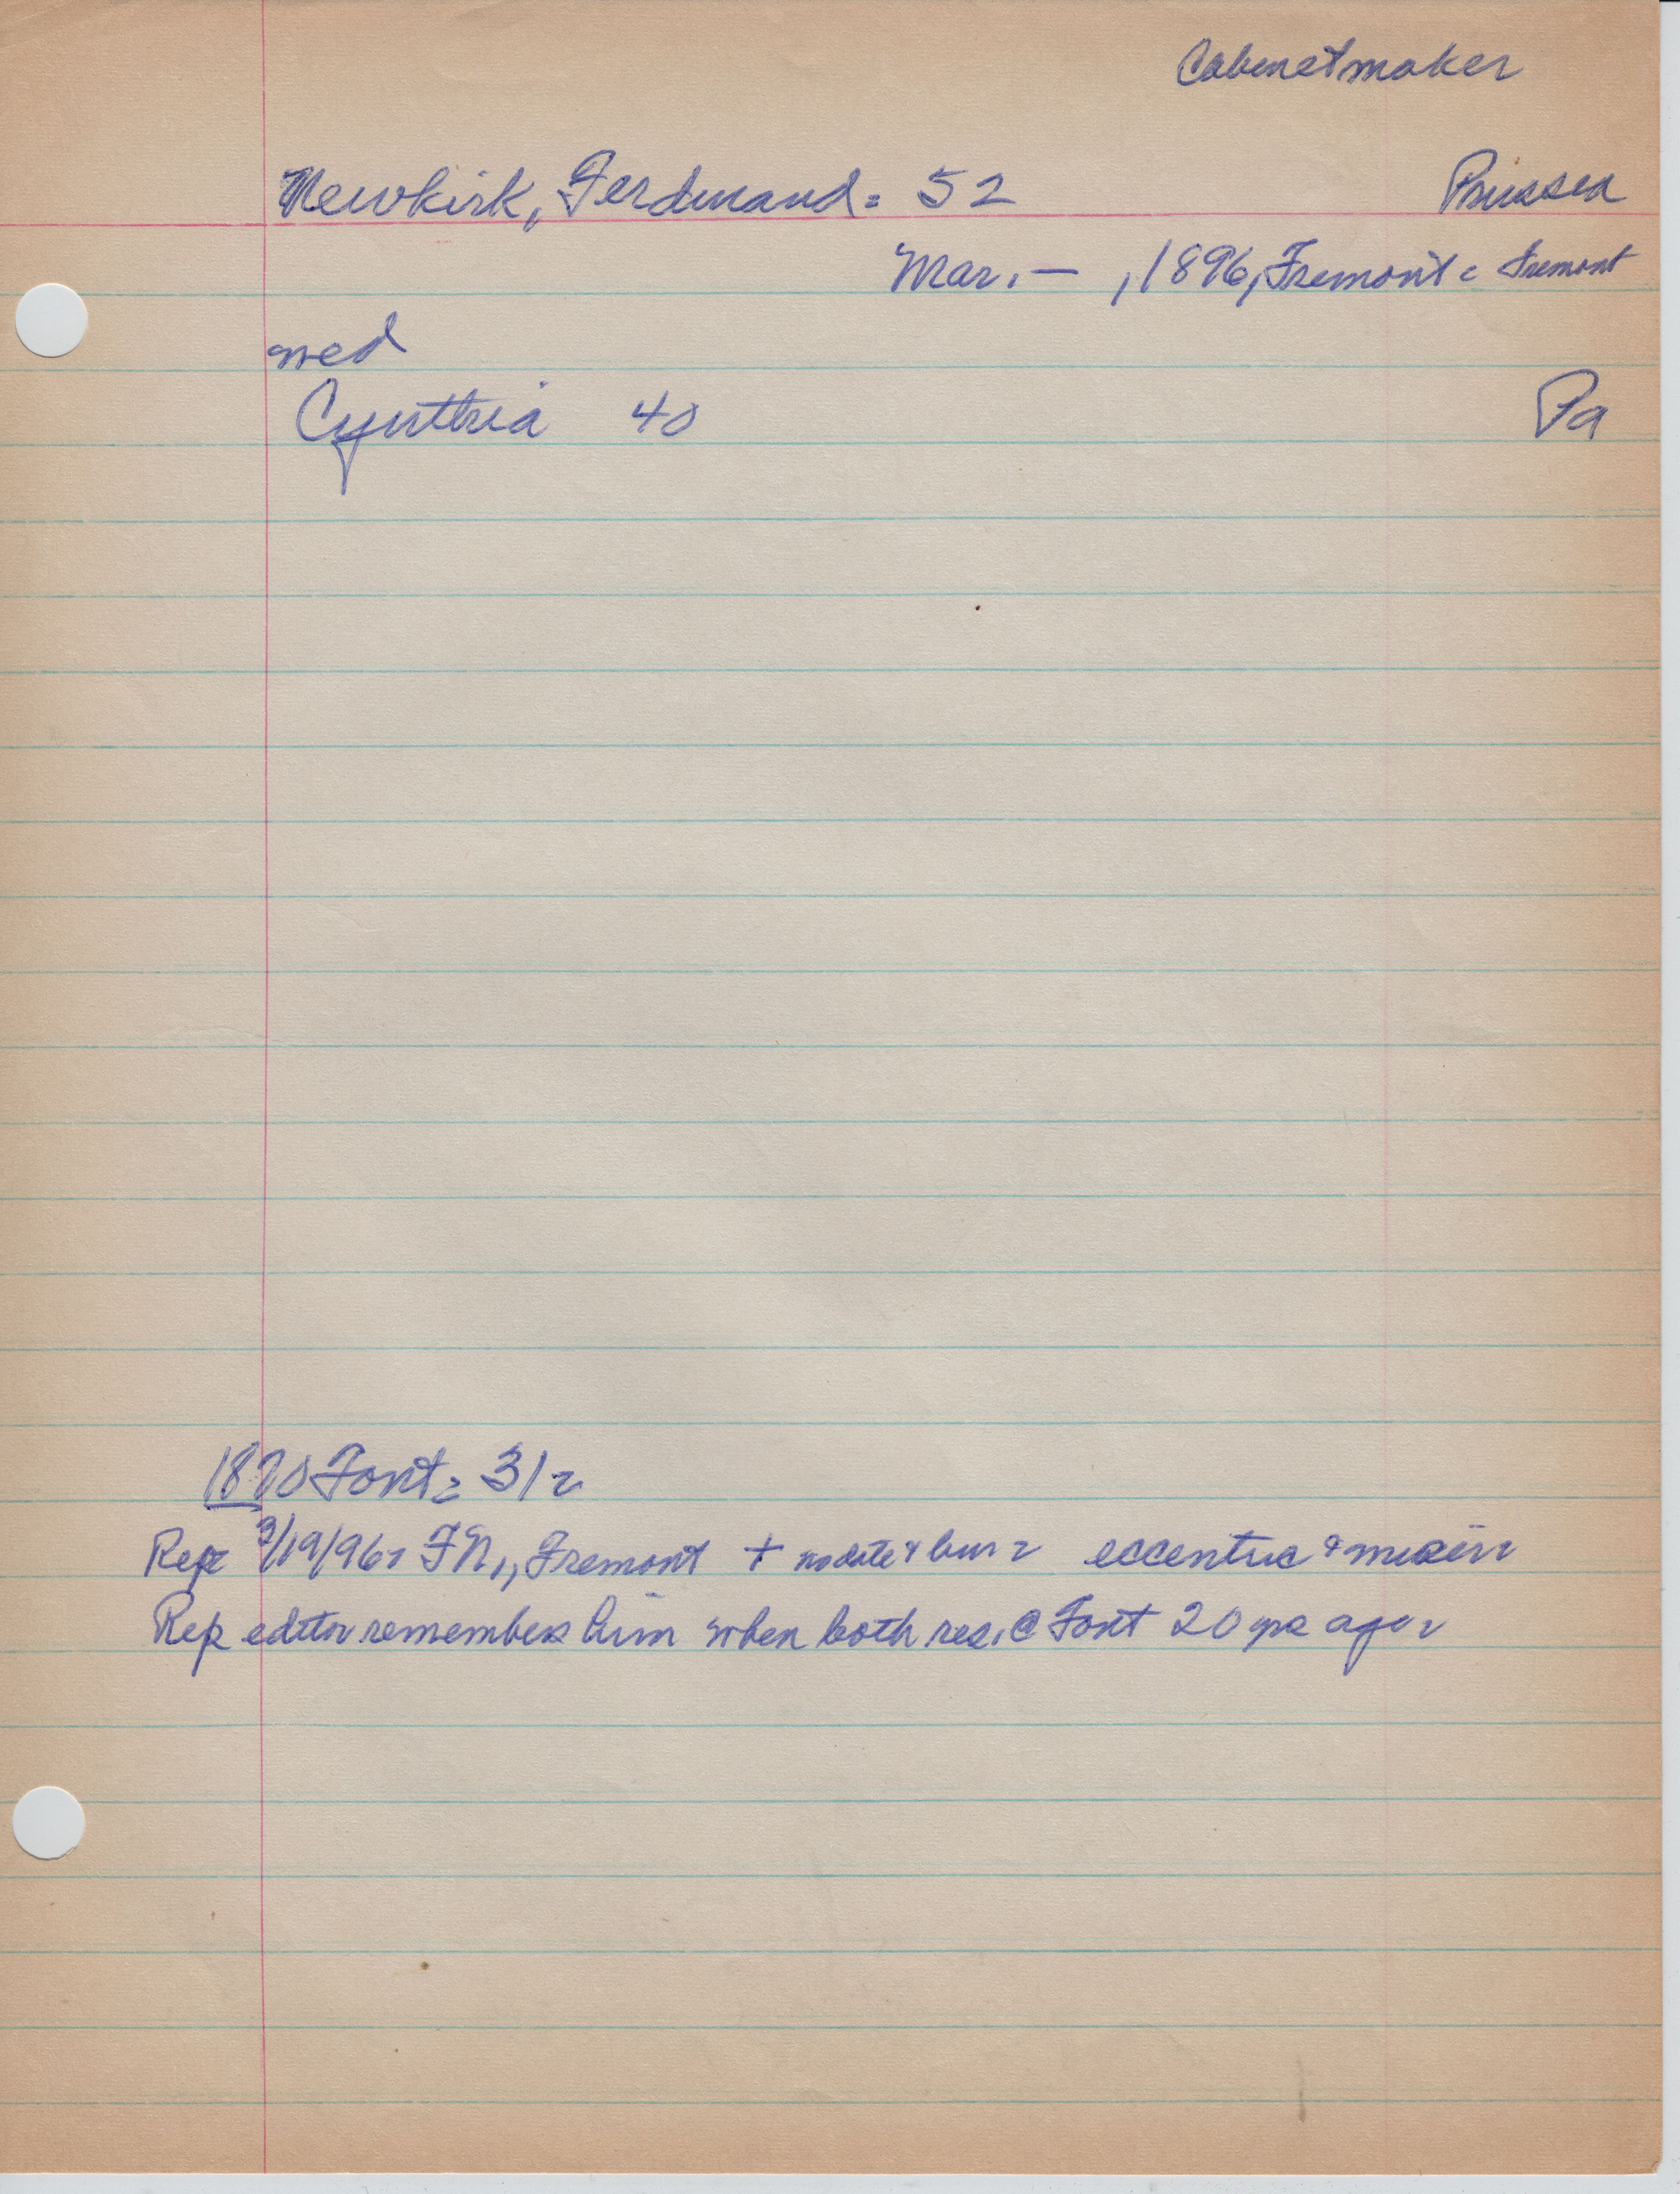 Cabenetmaker
Newkirk, Ferdinand. 52 Prussia
Mar. — , 1896, Fremont = Fremont
wed
Cynthia 40 Pa
1870 Font = 312
Rep 3/19/96: FN., Fremont + no date & bur = eccentric &
Rep editor remembers him when both res. @ Font 20 yrs ago.